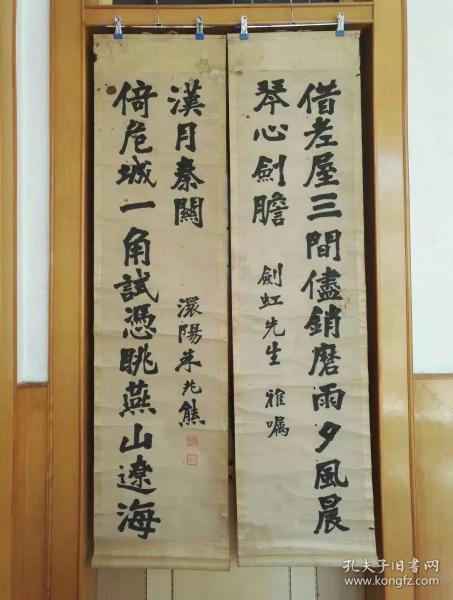 借老屋三間儘銷磨雨夕風晨
琴心劍膽
劍虹先生 雅嘱
倚危城一角試憑眺燕山遼海
漢月秦關
澴陽朱兆熊
孔夫子旧书网
www.kongfz.com